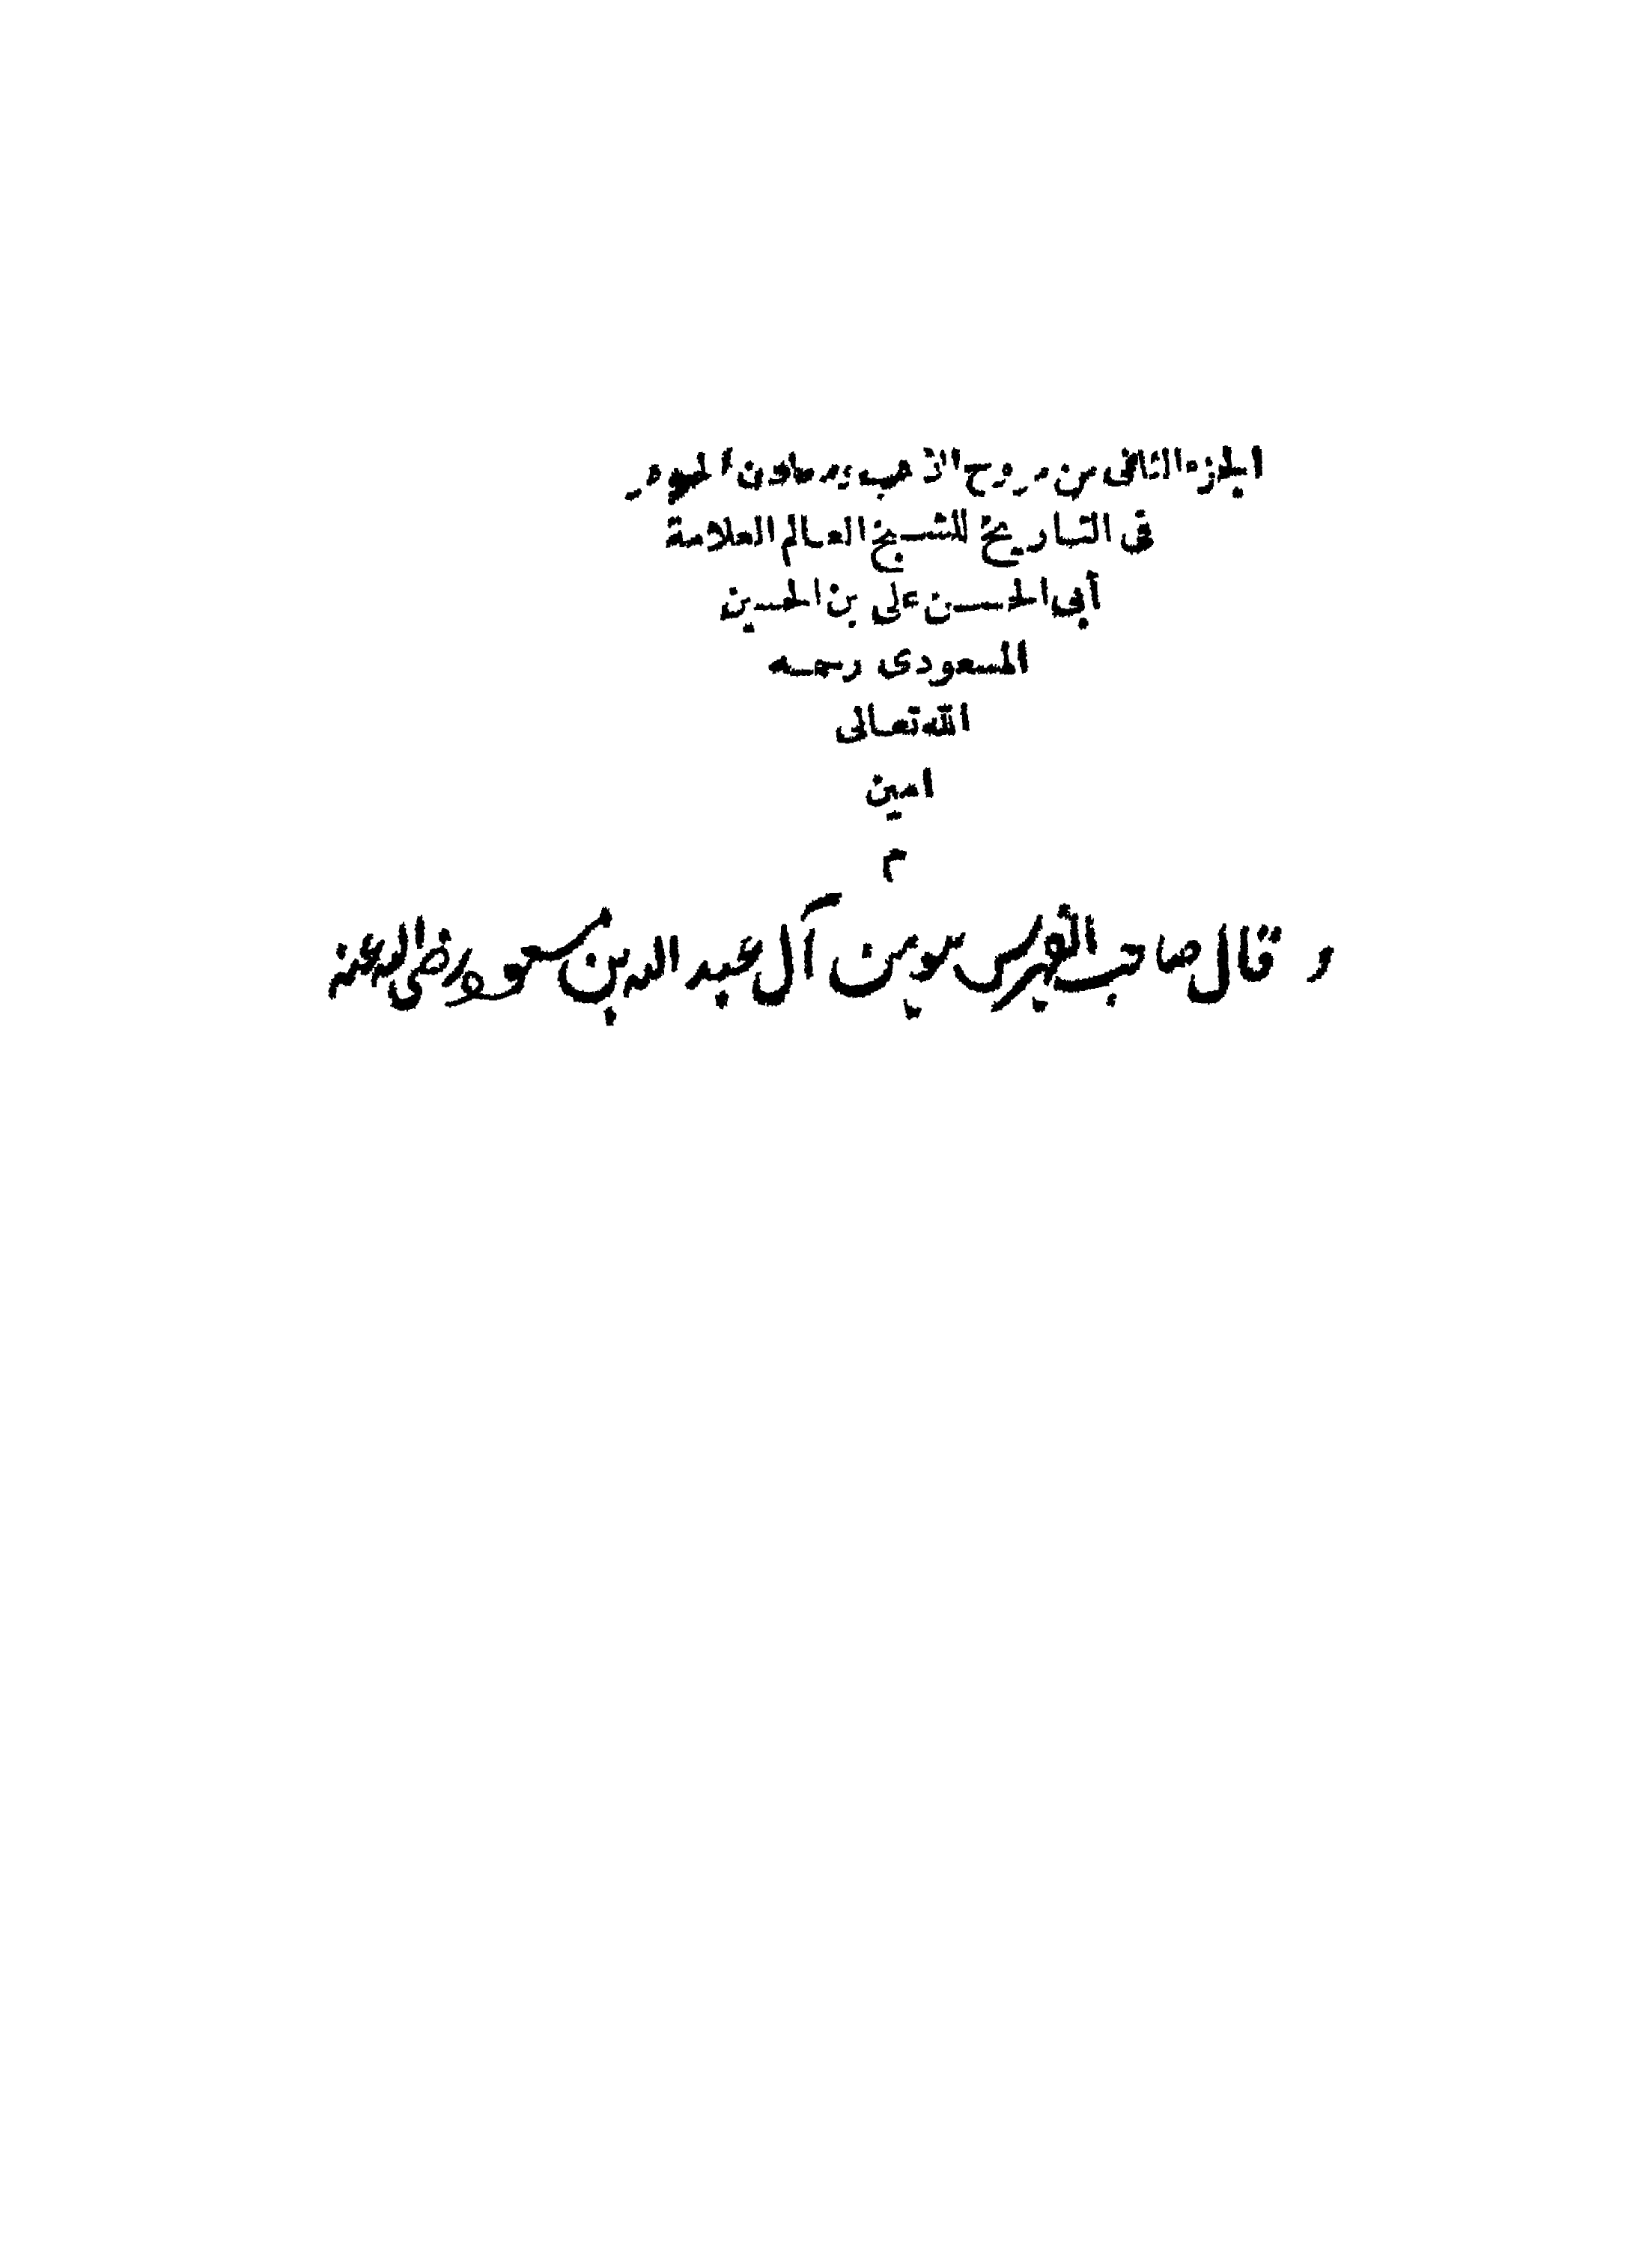 الجزء الثاني من مروج الذهب ومعادن الجوهر
في التاريخ للشيخ العالم العلامة
أبي الحسن علي بن الحسين
المسعودى رحمه
الله تعالى
امين
م
و قال صاحب الفهرس هو من آل عبد الله بن مسعود رضى الله عنه